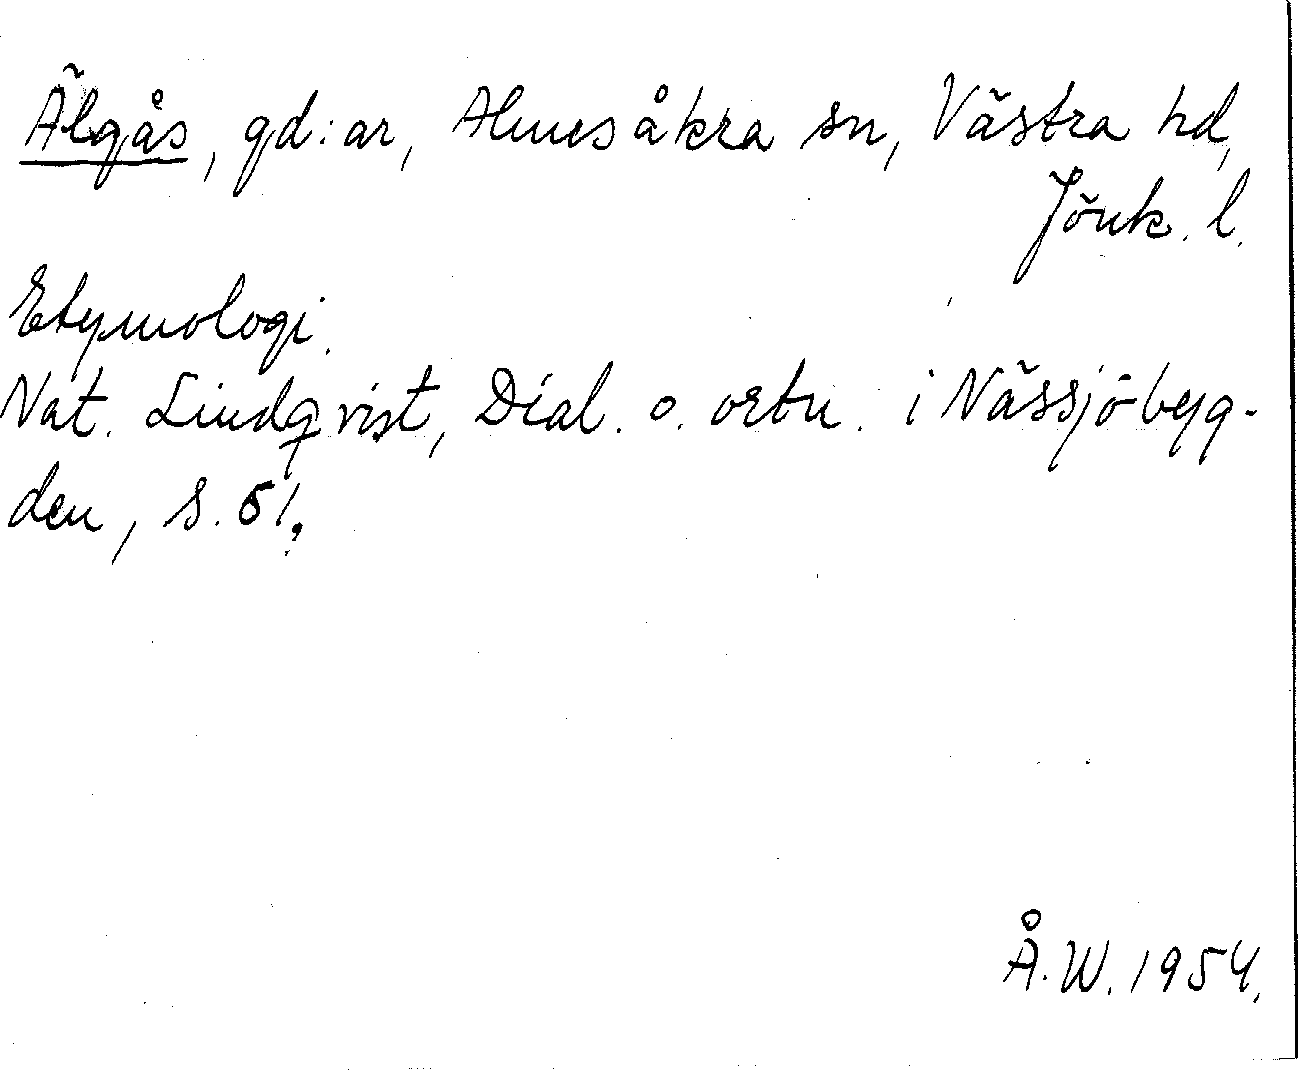 Älgås, gd:ar, Almesåkra sn, Västra hd,
Jönk. l.
Etymologi.
Nat. Lindqvist, Dial. o. ortn. i Nässjöbyg-
den, s. 51.
Å.W. 1954.